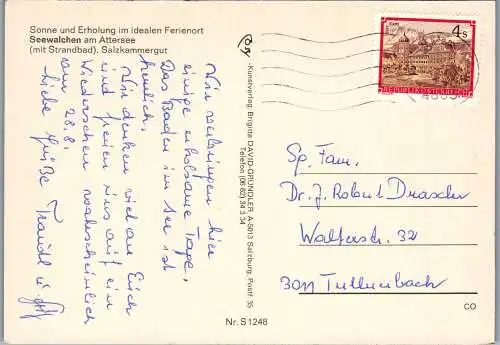 Sonne und Erholung im idealen Ferienort
Seewalchen am Attersee
(mit Strandbad), Salzkammergut
Wir verbringen hier
einige erholsame Tage.
Das Baden im See ist
herrlich.
Wir denken viel an Euch
und freuen uns auf ein
Wiedersehen wahrscheinlich
am 28.8.
Liebe Grüße Traudl u.
-Kunstverlag Brigitte DAVID-GRÜNDLER, A-5013 Salzburg, Postf. 35
Telefon (06 62) 34 3 34
4 s
REPUBLIK ÖSTERREICH
Sp. Fam.
Dr. J. Robert Drascher
Walterstr. 32
3011 Tullnerbach
Nr. S 1248
CO